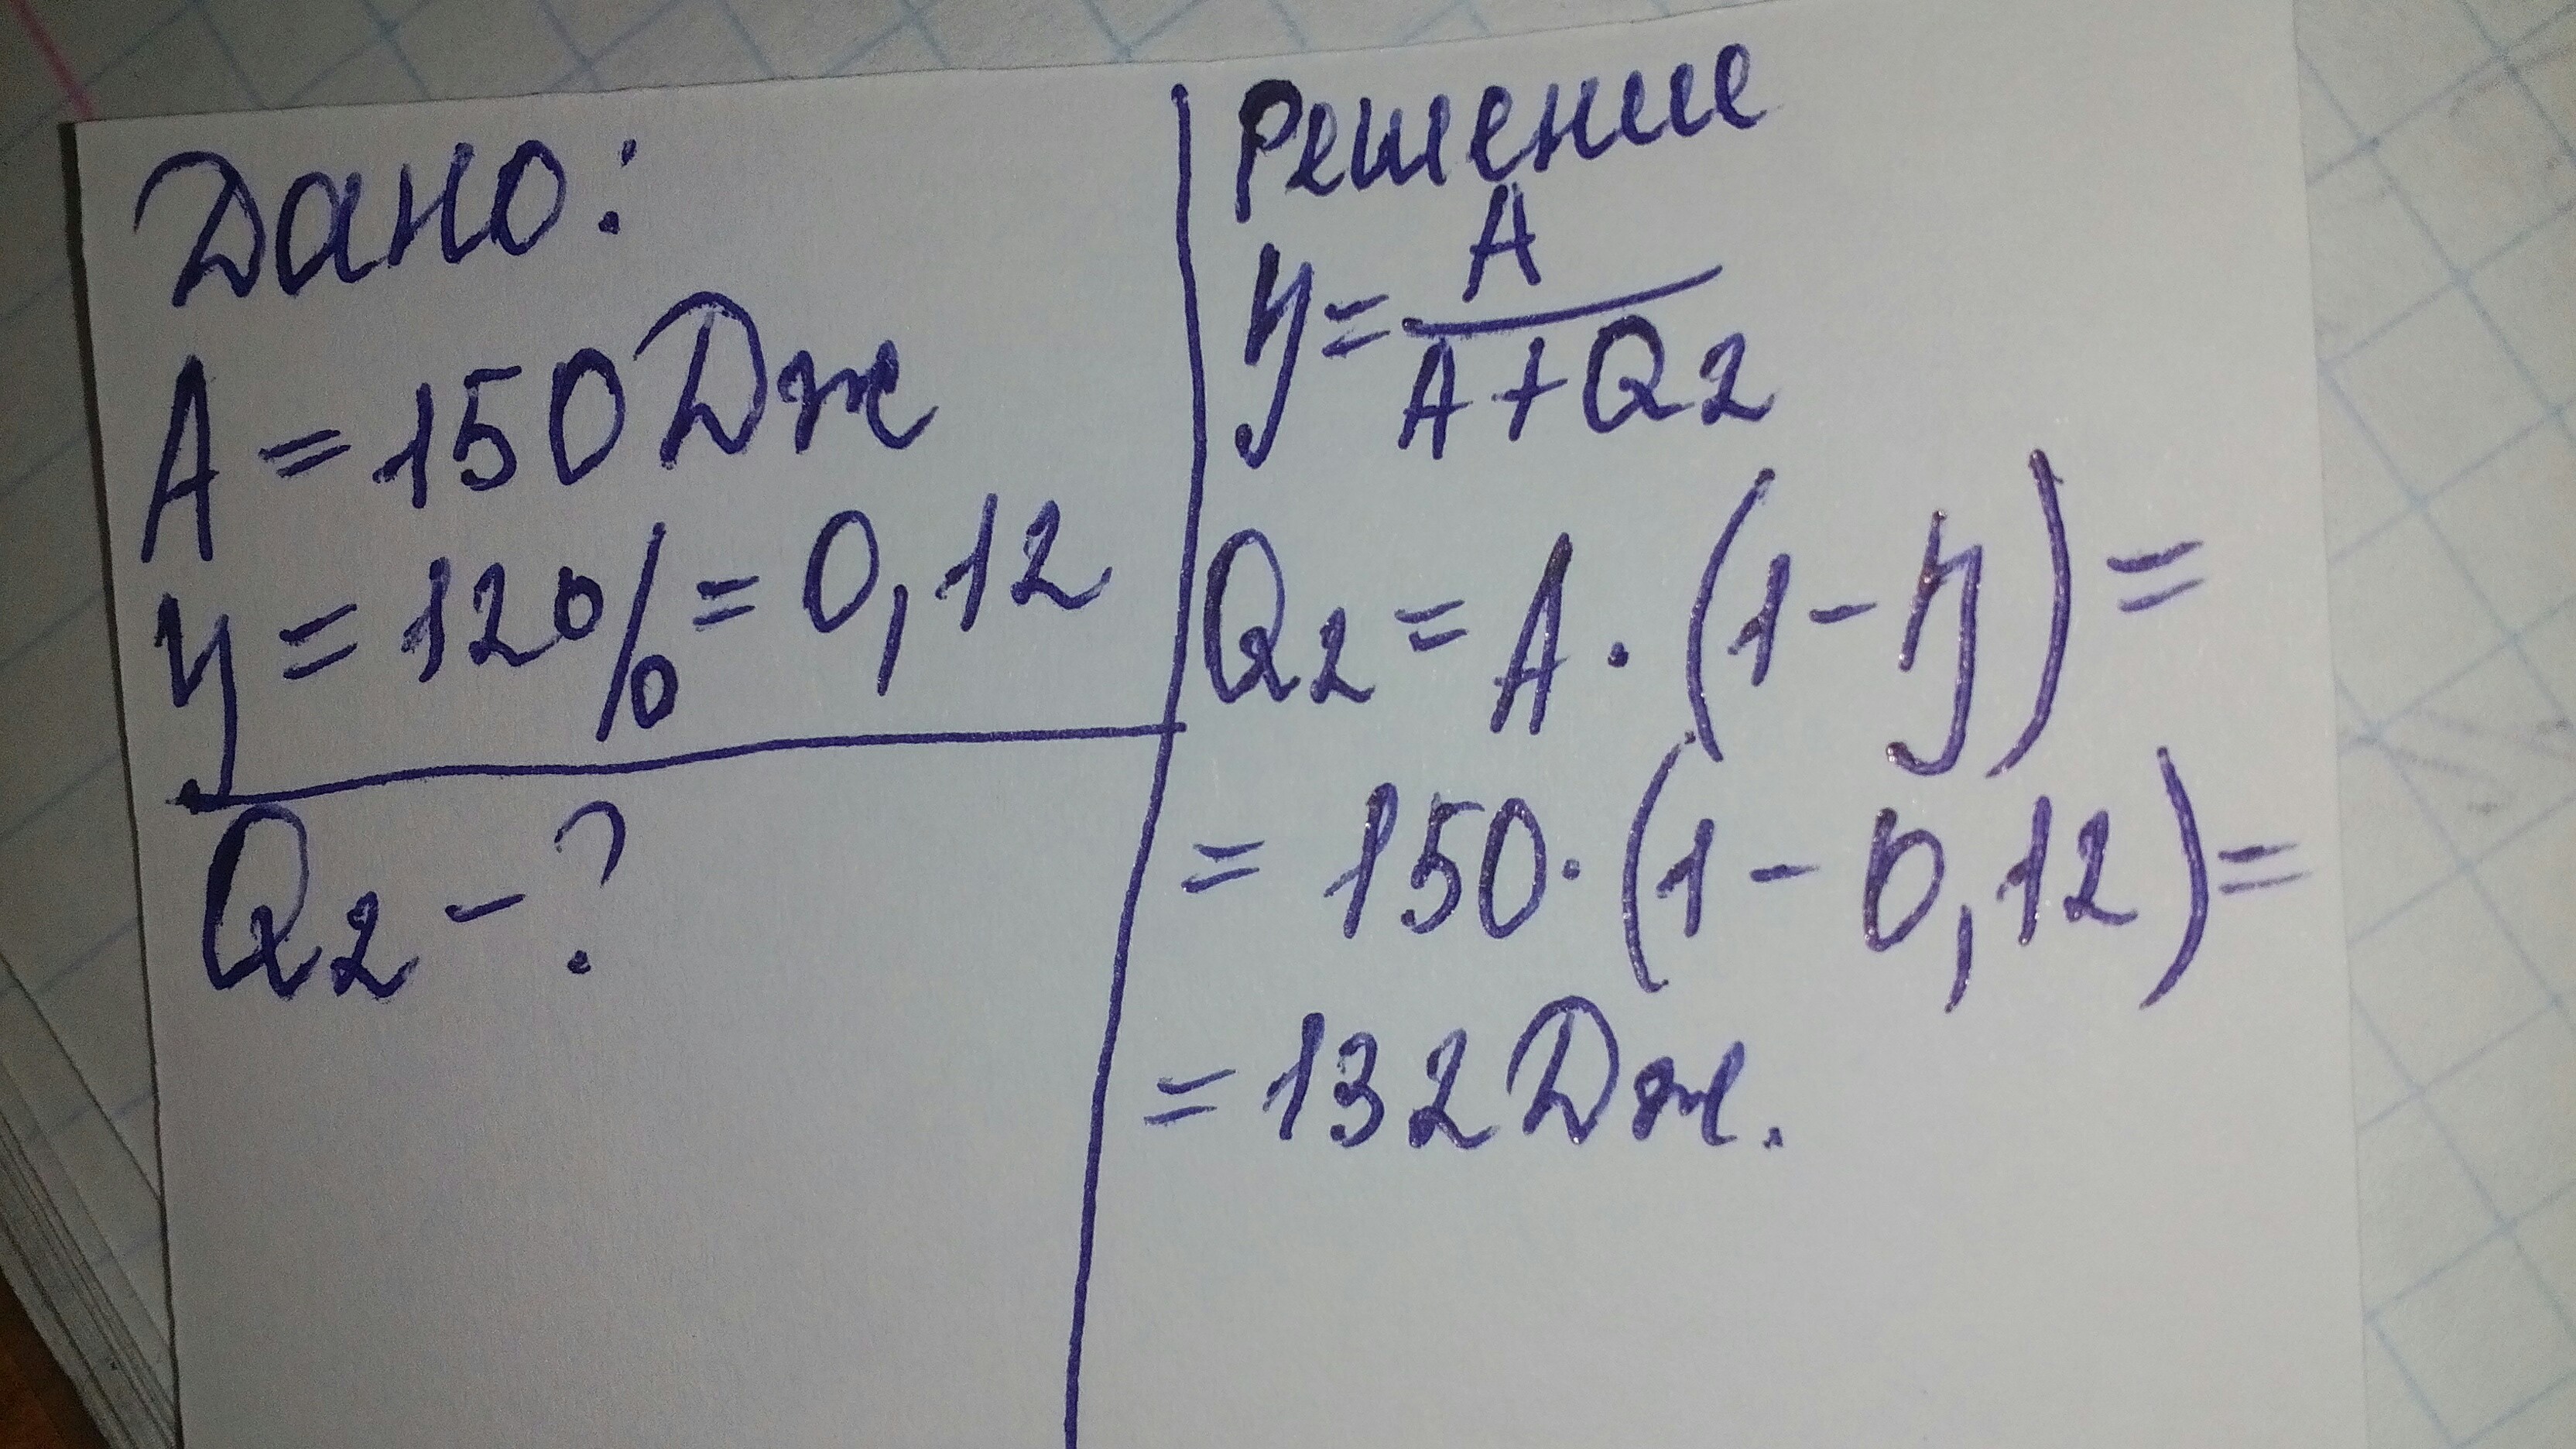 Дано:
A = 150 Дж
η = 12% = 0,12
Q2 - ?
Решение
η = A / A + Q2
Q2 = A · (1 - η) =
= 150 · (1 - 0,12) =
= 132 Дж.